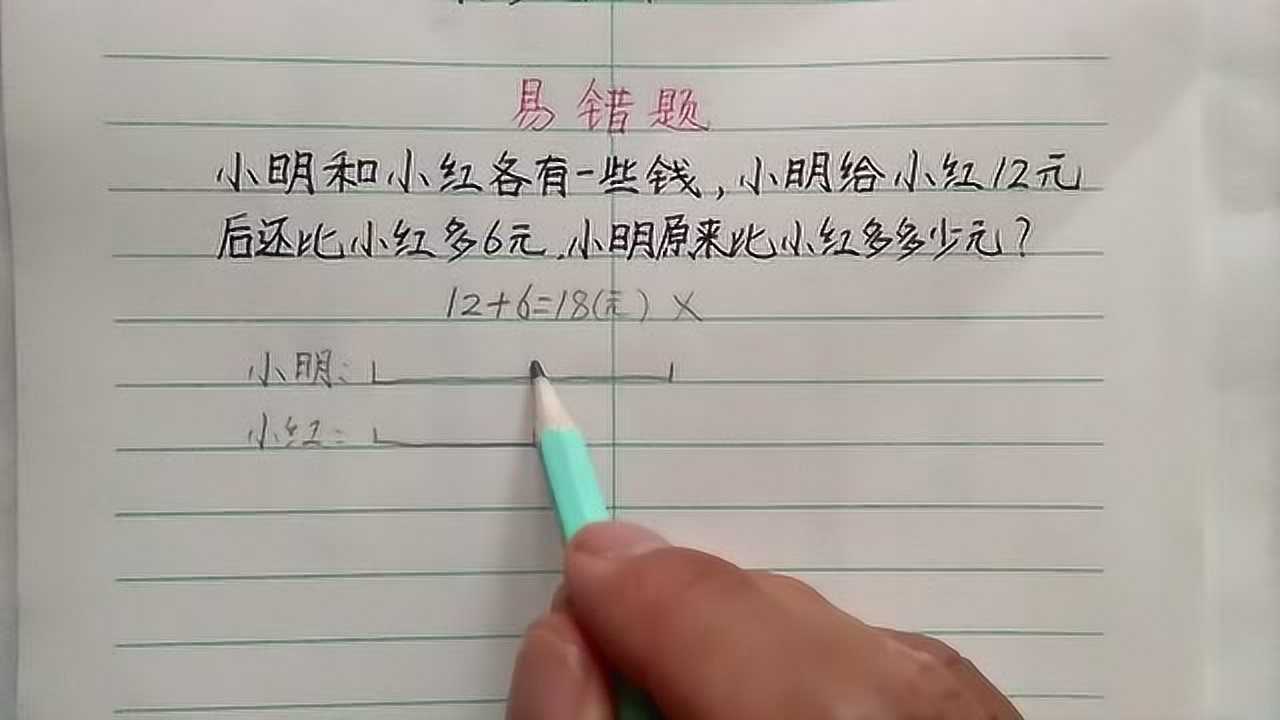 易错题
小明和小红各有一些钱,小明给小红12元
后还比小红多6元.小明原来比小红多多少元?
12+6=18(元) ×
小明:
小红: